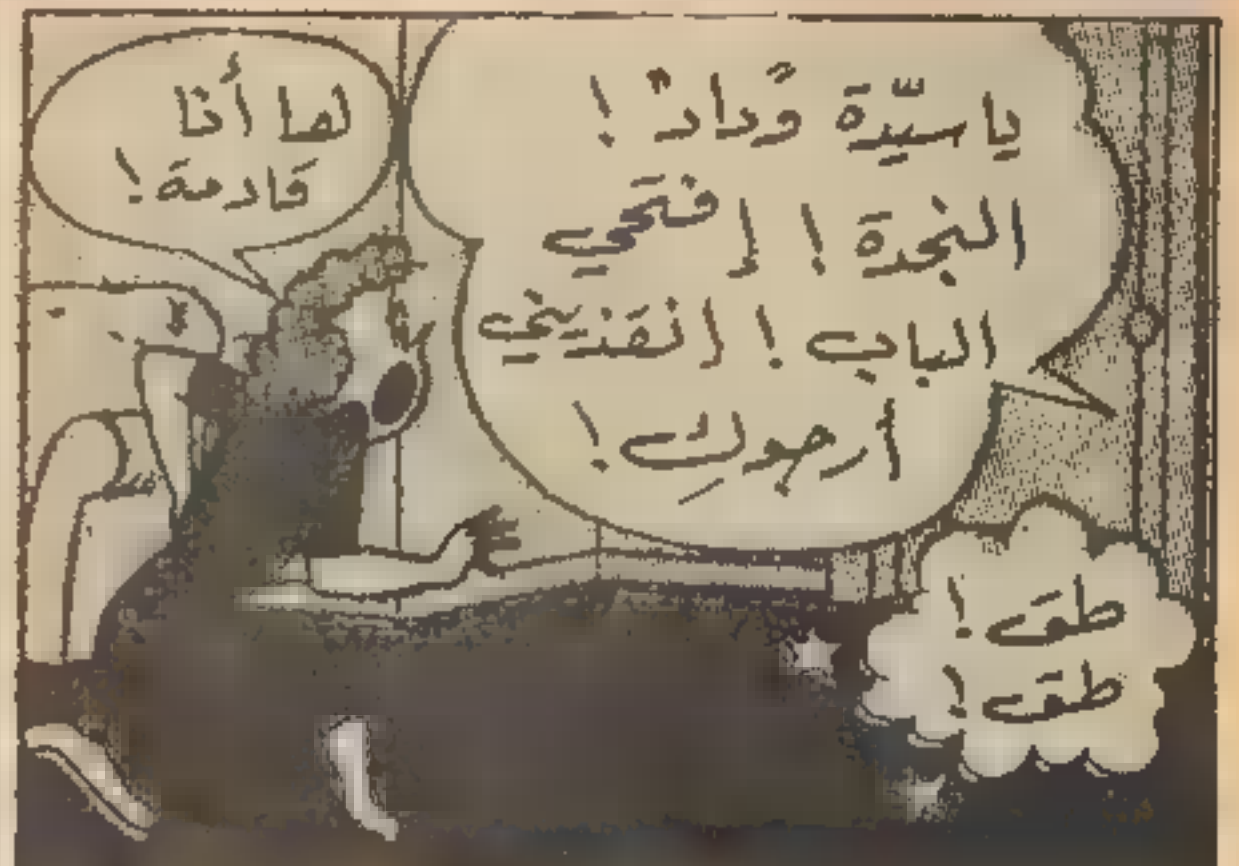 يا سيّدة وداد !
النجدة ! إفتحي
الباب ! انقذيني
أرجوكِ !
لها أنا
قادمة !
طق !
طق !